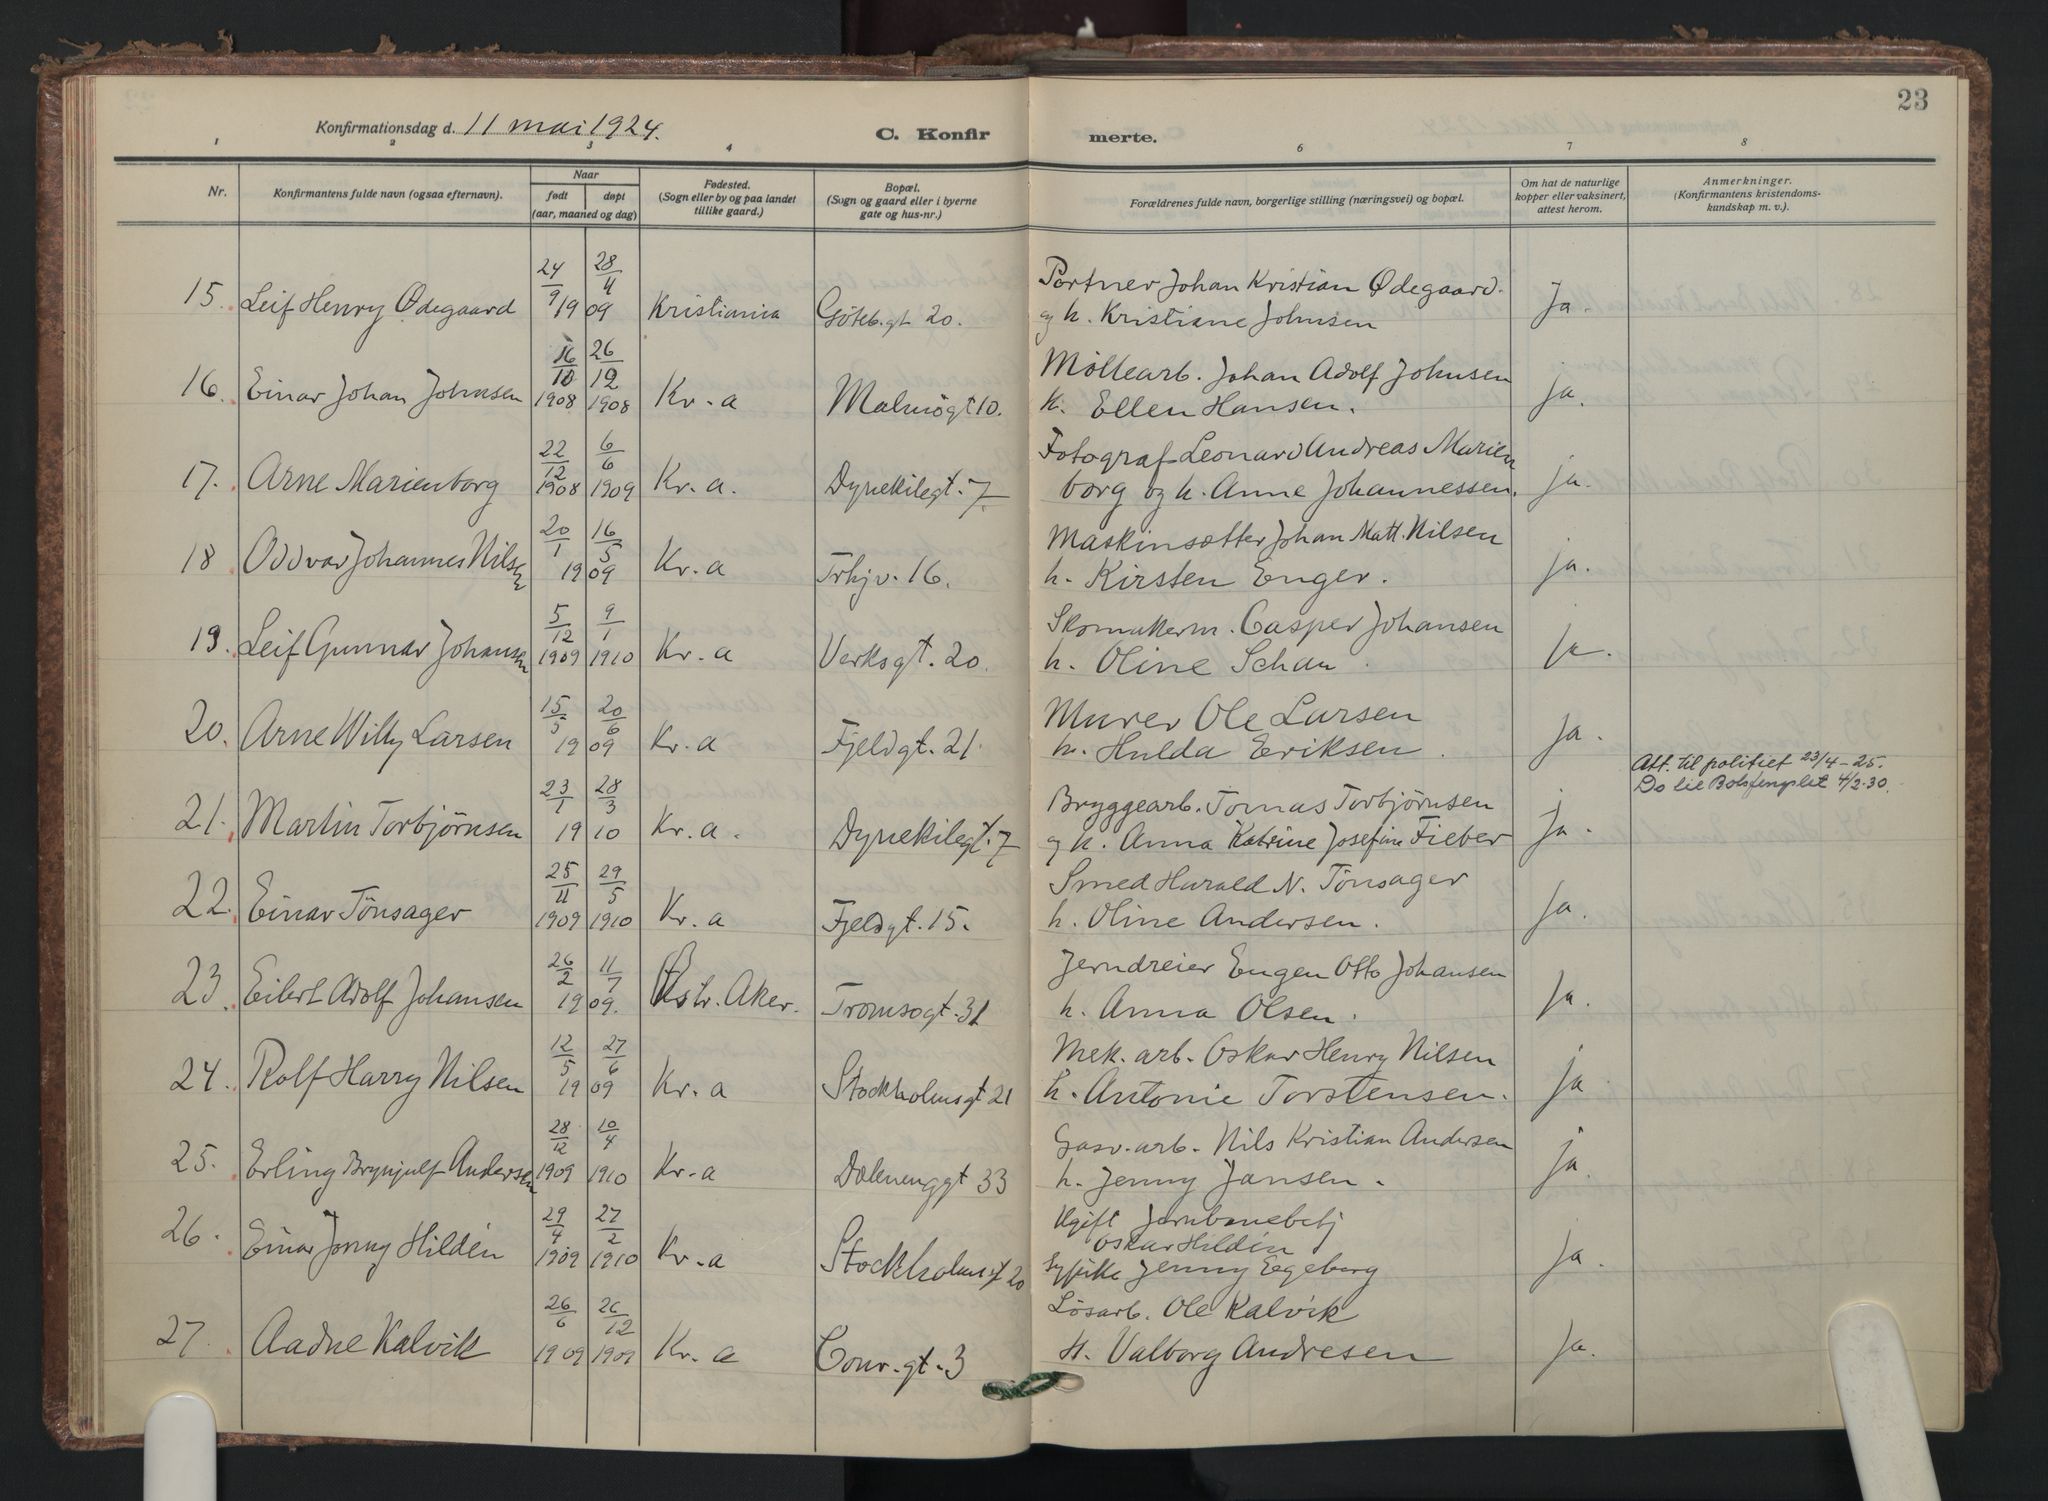 23
Konfirmationsdag d. 11 mai 1924.
C. Konfirmerte.
1 2 3 4 6 7 8
Nr.
Konfirmantens fulde navn (ogsaa efternavn).
Naar
født døpt
(aar, maaned og dag)
Fødested.
(Sogn eller by og paa landet
tillike gaard.)
Bopæl.
(Sogn og gaard eller i byerne
gate og hus-nr.)
Forældrenes fulde navn, borgerlige stilling (næringsvei) og bopæl.
Om hat de naturlige
kopper eller vaksinert,
attest herom.
Anmerkninger.
(Konfirmantens kristendoms-
kundskap m. v.).
15. Leif Henry Ødegaard 24/9 28/4 1909 Kristiania Göteb.gt 20. Portner Johan Kristian Ødegaard. Ja.
og h. Kristiane Johnsen
16. Einar Johan Johnsen 16/10 1908 26/12 1908 Kr.a Malmögt 10. Møllearb. Johan Adolf Johnsen ja.
h. Ellen Hansen.
17. Arne Marienborg 22/12 1908 6/6 1909 Kr.a. Dynekilegt. 7 Fotograf Leonard Andreas Marien ja.
borg og h. Anne Johannessen.
18 Oddvar Johannes Nilsen 20/1 16/5 1909 Kr.a Trhjv. 16. Maskinsætter Johan Matt. Nilsen ja.
h. Kirsten Enger.
19. Leif Gunnar Johansen 5/12 1909 9/1 1910 Kr.a Verksgt. 20. Skomakerm. Casper Johansen ja.
h. Oline Schau.
20. Arne Willy Larsen 15/5 20/6 1909 Kr.a Fjeldgt. 21. Murer Ole Larsen ja.
h. Hulda Eriksen.
Att. til politiet 23/4-25.
Do til Botsfengslet 4/2-30.
21. Martin Torbjørnsen 23/1 28/3 1910 Kr.a. Dynekilegt. 7 Bryggearb. Tomas Torbjørnsen ja.
og h. Anna Katrine Josefine Fieber
22. Einar Tönsager 25/11 1909 29/5 1910 Kr.a Fjeldgt. 15. Smed Harald N. Tönsager Ja.
h. Oline Andersen.
23. Eilert Adolf Johansen 26/2 11/7 1909. Østr. Aker. Tromsogt. 31 Jerndreier Eugen Otto Johansen Ja.
h. Anna Olsen.
24. Rolf Harry Nilsen 12/5 27/6 1909 Kr.a Stockholmsgt 21 Mek. arb. Oskar Henry Nilsen ja
h. Antonie Torstensen.
25. Erling Brynjulf Andersen 28/12 1909 10/4 1910 Kr.a Dælenenggt 33 Gasv. arb. Nils Kristian Andersen ja.
h. Jenny Jansen.
26. Einar Jonny Hildén 29/4 1909 27/2 1910 Kr.a Stockholmsgt 20 Ugift Jernbanebetj ja.
Oskar Hildén
Sypike Jenny Egeberg
27. Aadne Kalvik 26/6 1909 26/12 1909 Kr.a Conr.gt. 3 Løsarb. Ole Kalvik Ja.
H. Valborg Andresen